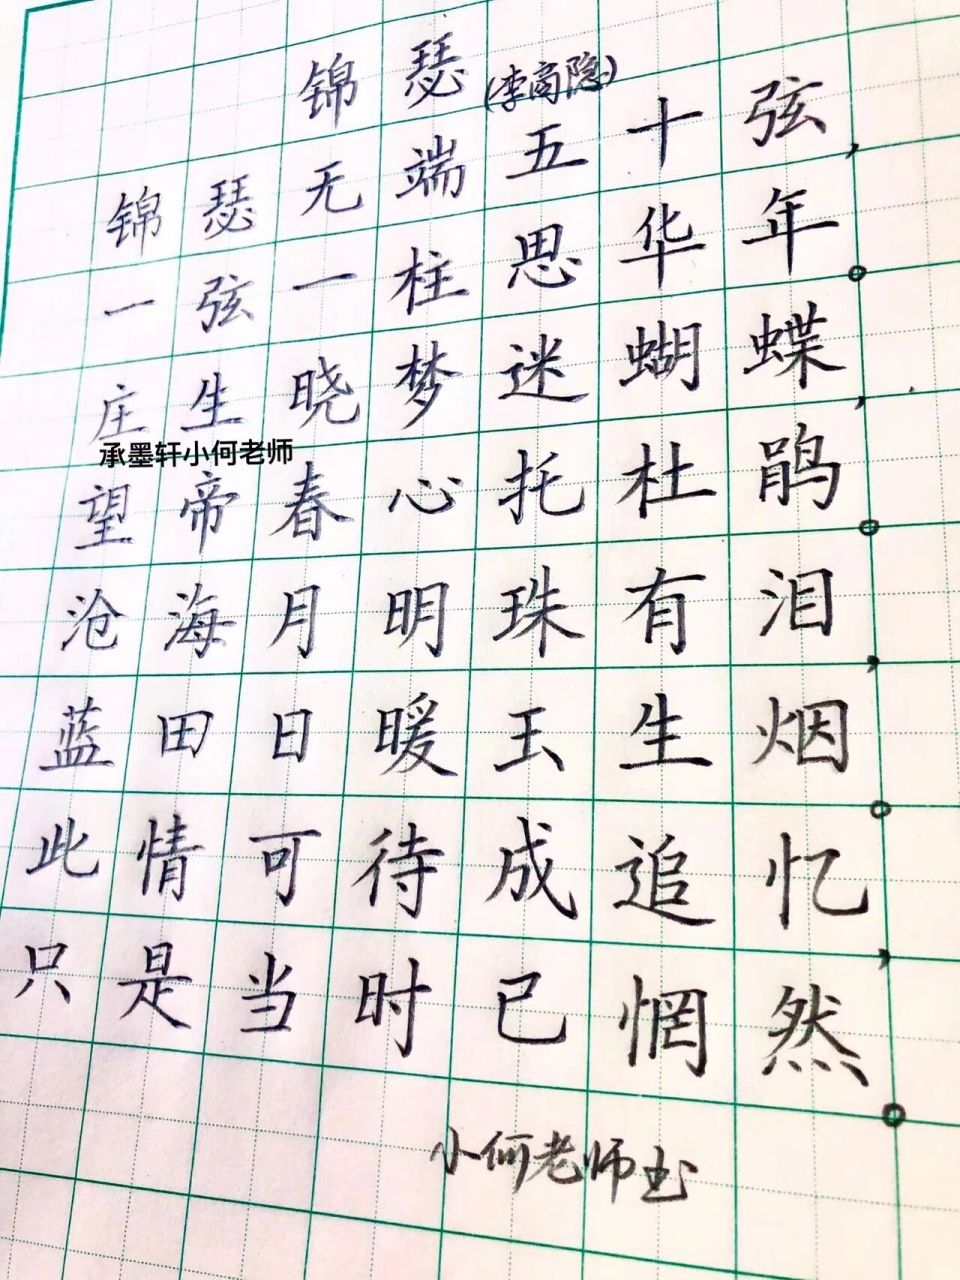 锦瑟(李商隐)
锦瑟无端五十弦，
一弦一柱思华年。
庄生晓梦迷蝴蝶，
承墨轩小何老师
望帝春心托杜鹃。
沧海月明珠有泪，
蓝田日暖玉生烟。
此情可待成追忆，
只是当时已惘然。
小何老师书